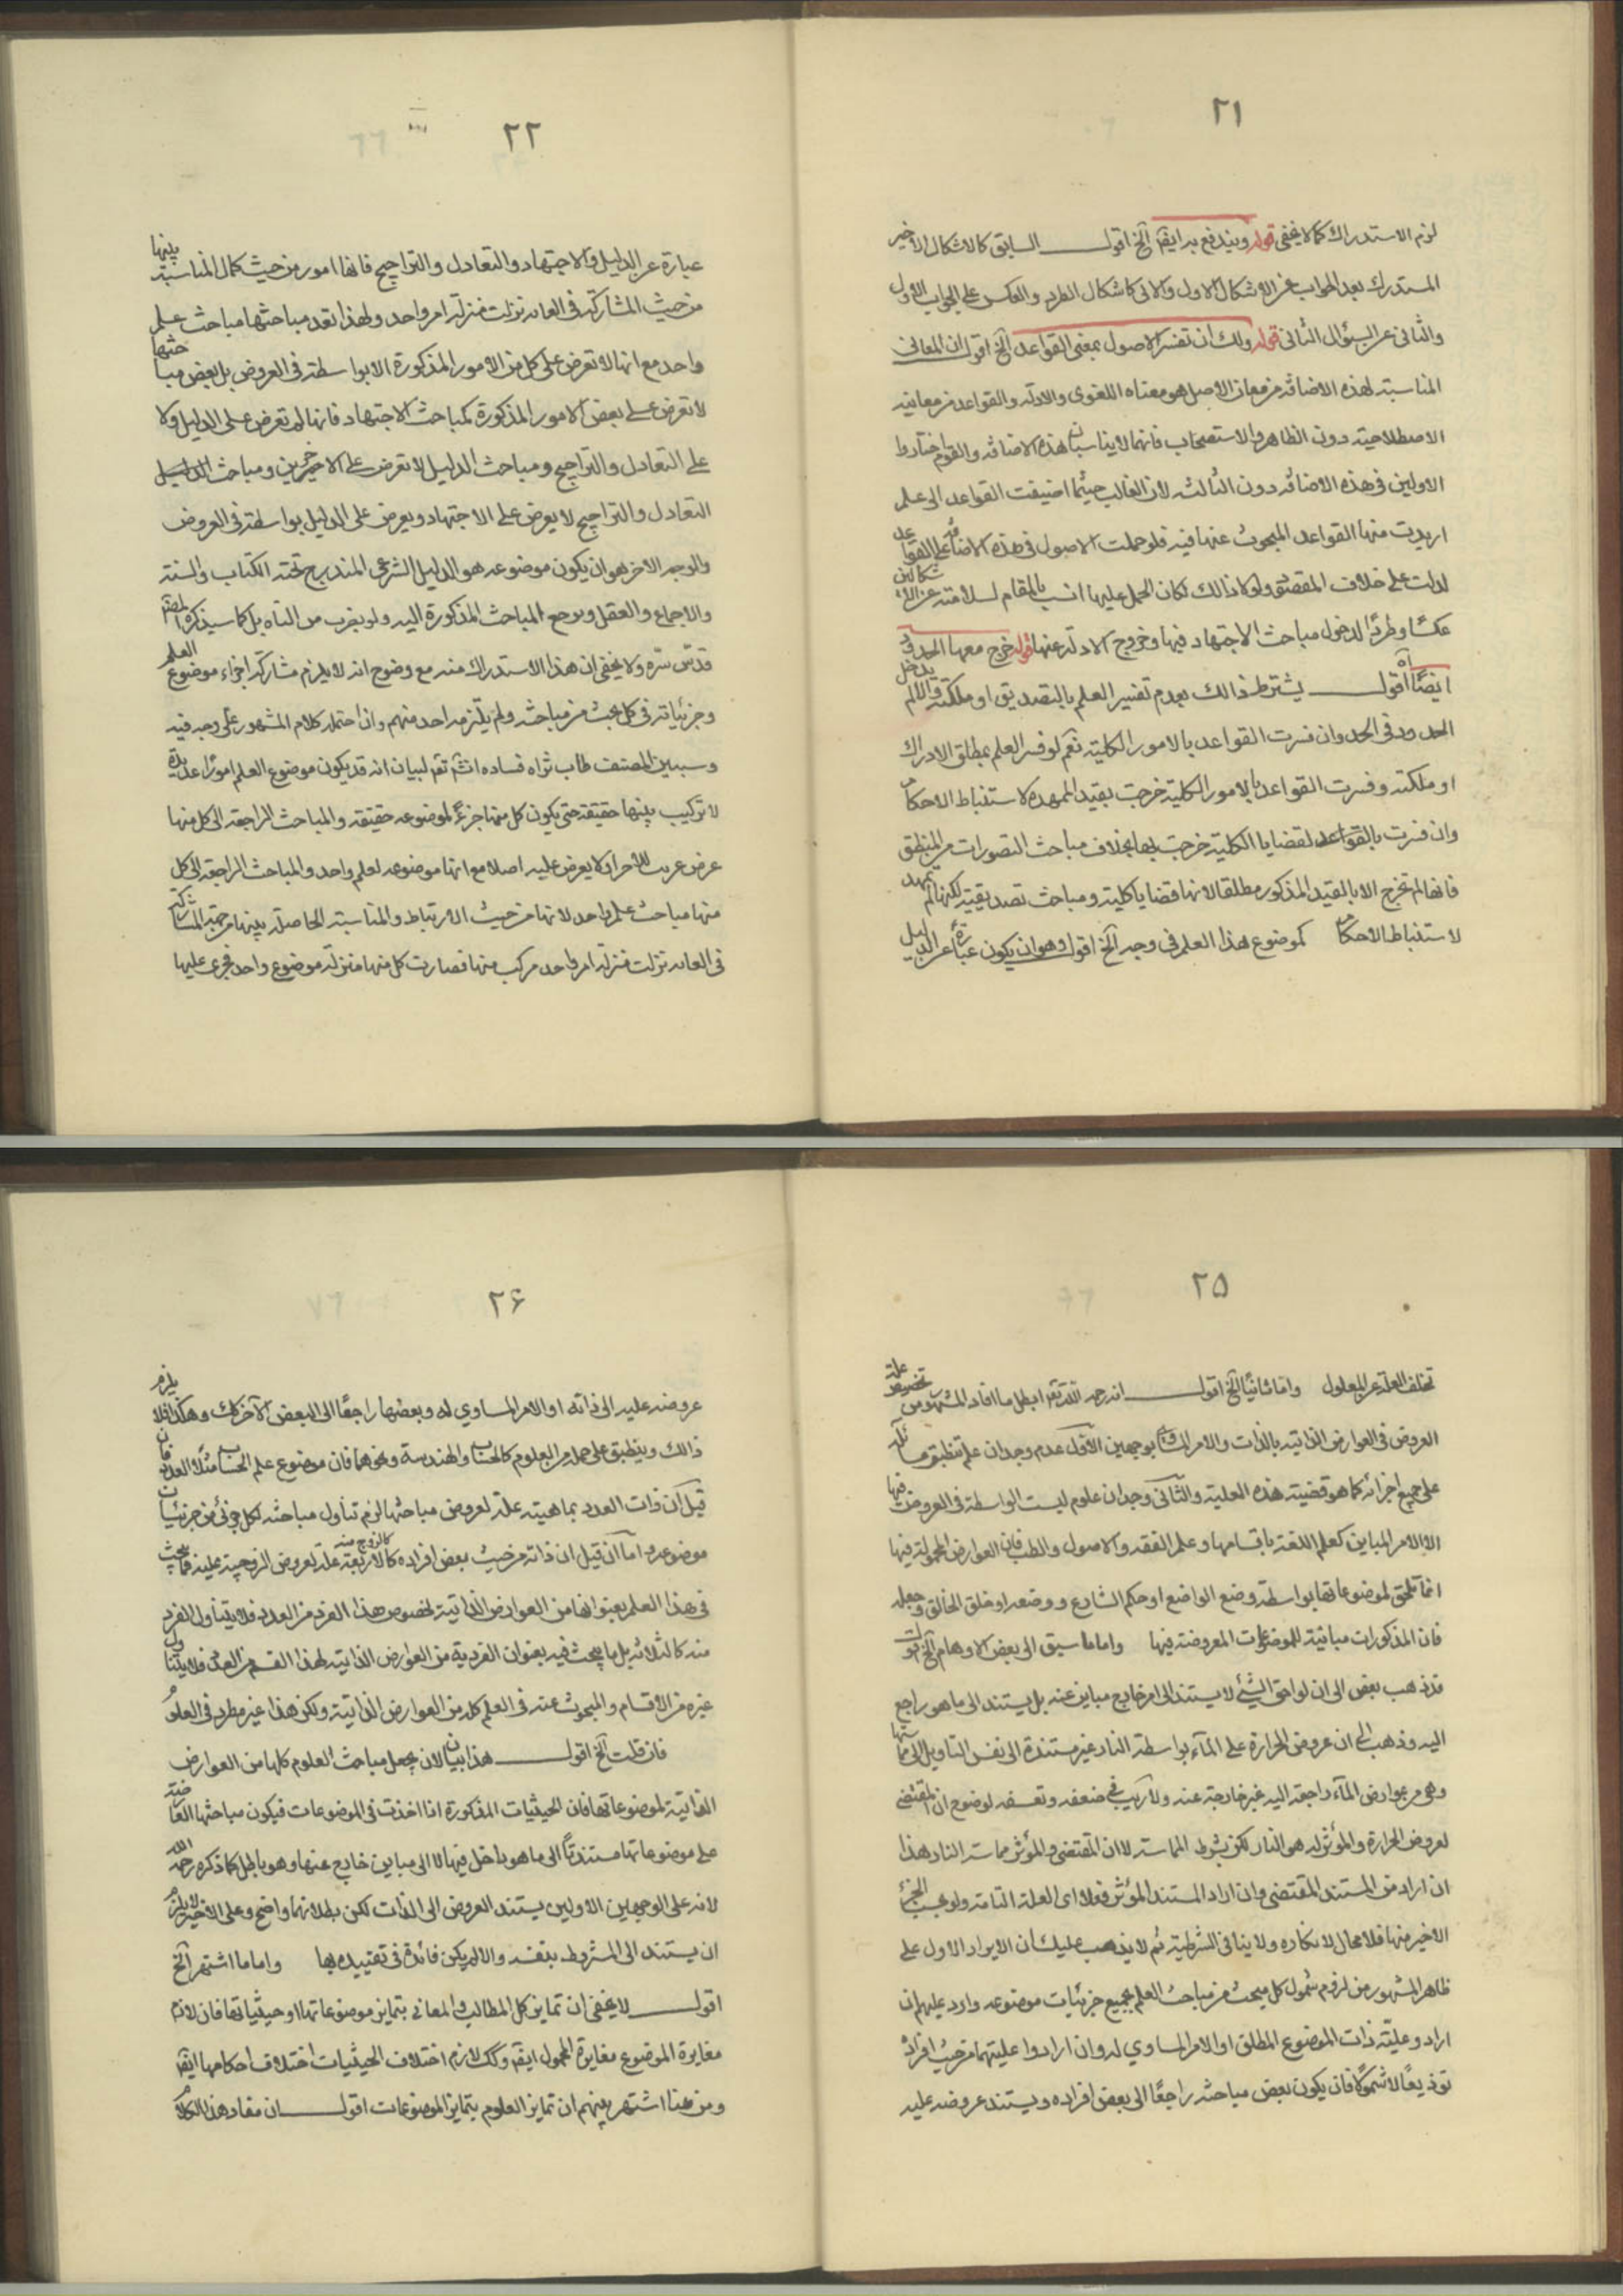 ٢١
لزم الاستدراك كما لا يخفى قوله ويندفع به ايضا الخ اقول السابق كالاشكال الاخير
المستدرك بعد الجواب عن الاشكال الاول والاتى كاشكال الطرد والعكس على الجواب الاول
والثانى عن السؤال الثانى قوله ولك ان تفسر الاصول بمعنى القواعد الخ اقول ان المعانى
المناسبة لهذه الاضافة من معانى الاصل هو معناه اللغوى والادلة والقواعد من معانيه
الاصطلاحية دون الظاهر والاستصحاب فانهما لا يناسبان هذه الاضافة والقوم اختاروا
الاولين فى هذه الاضافة دون الثالث لان الغالب حيثما اضيفت القواعد الى علم
اريدت منها القواعد المبحوث عنها فيه فلو حملت الاصول فى هذه الاضافة على القواعد
لدلت على خلاف المقصود ولولا ذالك لكان الحمل عليها انسب بالمقام لسلامته عن الاشكالين
عكسًا وطردًا لدخول مباحث الاجتهاد فيها وخروج الادلة عنها قوله خرج معها الحدود
ايضًا اه اقول يشترط ذالك بعدم تفسير العلم بالتصديق او ملكته والا لم يدخل
الحدود فى الحد وان فسرت القواعد بالامور الكلية نعم لو فسر العلم بمطلق الادراك
او ملكته وفسرت القواعد بالامور الكلية خرجت بقيد الممهدة لاستنباط الاحكام
وان فسرت بالقواعد لقضايا الكلية خرجت بها بخلاف مباحث التصورات من المنطق
فانها لم تخرج الا بالقيد المذكور مطلقا لانها قضايا كلية ومباحث تصديقية لكنها لم تمهد
لاستنباط الاحكام كموضوع هذا العلم فى وجه الخ اقول وهو ان يكون عبارة عن الدليل
٢٢
عبارة عن الدليل والاجتهاد والتعادل والتراجيح فانها امور من حيث كمال المناسبة بينها
من حيث المشاركة فى الغاية نزلت منزلة امر واحد ولهذا تعد مباحثها مباحث علم
واحد مع انها لا تعرض على كل من الامور المذكورة الا بواسطة فى العروض بل بعض مباحثها
لا تعرض على بعض الامور المذكورة كمباحث الاجتهاد فانها لم تعرض على الدليل ولا
على التعادل والتراجيح ومباحث الدليل لا تعرض على الاخيرين ومباحث الدليل
التعادل والتراجيح لا يعرض على الاجتهاد ويعرض على الدليل بواسطة فى العروض
والوجه الاخر هو ان يكون موضوعه هو الدليل الشرعى المندرج تحته الكتاب والسنة
والاجماع والعقل ويرجع المباحث المذكورة اليه ولو بضرب من التأويل كما سيذكره المصنف
قدس سره ولا يخفى ان هذا الاستدراك منه مع وضوح انه لا يلزم مشاركة اجزاء موضوع العلم
وجزئياته فى كل بحث من مباحثه ولم يلتزمه احد منهم وان احتمله كلام المشهور على وجه فيه
وسيبين المصنف طاب ثراه فساده انشم تقم لبيان انه قد يكون موضوع العلم امورًا عديدة
لا تركيب بينها حقيقة حتى يكون كل منها جزءً لموضوعه حقيقة والمباحث الراجعة الى كل منها
عرض غريب للاخر او لا يعرض عليه اصلا مع انها موضوعه لعلم واحد والمباحث الراجعة الى كل
منها مباحث علم واحد لانها من حيث الارتباط والمناسبة الحاصلة بينها من جهة المشاركة
فى الغاية نزلت منزلة امر واحد مركب منها فصارت كل منها منزلة موضوع واحد فجرى عليها
٢۵
تخلف العلة عن المعلول واما ثانيًا الخ اقول انه رحمه الله تعم ابطل ما افاد المشهور من تخصيص علة
العروض فى العوارض الذاتية بالذات والامر المساوى بوجهين الاول عدم وجدان علم تنطبق مسائله
على جميع اجزائه كما هو قضية هذه العلية والثانى وجدان علوم ليست الواسطة فى العروض فيها
الا الامر المباين كعلم اللغة باقسامها وعلم الفقه والاصول والطب فان العوارض المحمولة فيها
انما تلحق لموضوعاتها بواسطة وضع الواضع او حكم الشارع ووضعه او خلق الخالق وجعله
فان المذكورات مباينة للموضوعات المعروضة فيها واما ما سبق الى بعض الاوهام الخ اقول
قد ذهب بعض الى ان لواحق الشئ لا يستند الى امر خارج مباين عنه بل يستند الى ما هو راجع
اليه وذهب الى ان عروض الحرارة على الماء بواسطة النار غير مستندة الى نفس النار بل الى مماستها
وهى من عوارض الماء راجعة اليه غير خارجة عنه ولا ريب فى ضعفه وتعسفه لوضوح ان المقتضى
لعروض الحرارة والمؤثر له هو النار لكن بشرط المماسة لا ان المقتضى والمؤثر مماسة النار هذا
ان اراد من المستند المقتضى وان اراد المستند المؤثر فعلا اى العلة التامة ولو بحسب الجزء
الاخير منها فلا مجال لانكاره ولا ينافى الشرطية ثم لا يذهب عليك ان الايراد الاول على
ظاهر المشهور من لزوم شمول كل مبحث من مباحث العلم بجميع جزئيات موضوعه وارد عليهم ان
ارادو علية ذات الموضوع المطلق او الامر المساوي له وان ارادوا عليتهما من حيث افراده
توذيعًا لا شمولا فان يكون بعض مباحثه راجعًا الى بعض افراده ويستند عروضه عليه
٢۶
عروضه عليه الى ذاته او الامر المساوي له وبعضها راجعًا الى البعض الآخر كك وهكذا فلا يلزم
ذالك وينطبق على جملة من العلوم كالحساب والهندسة ونحوهما فان موضوع علم الحساب مثلا العدد فان
قيل ان ذات العدد بماهيته علة لعروض مباحثها لزم تناول مباحثه لكل جزئى من جزئيات
موضوعه واما ان قيل ان ذاته من حيث بعض افراده كالاربعة كالزوج منه علة لعروض الزوجية عليه فما يبحث
فى هذا العلم بعنوانها من العوارض الذاتية لخصوص هذا الفرد من العدد فلا يتناول الفرد
منه كالثلاثة بل ما يبحث فيه بعنوان الفردية من العوارض الذاتية لهذا القسم من العدد فلا يتناول
غيره من الاقسام والمبحوث عنه فى العلم كله من العوارض الذاتية ولكن هذا غير مطرد فى العلوم
فان قلت الخ اقول هذا بيان لان يجعل مباحث العلوم كلها من العوارض
الذاتية لموضوعاتها فان الحيثيات المذكورة اذا اخذت فى الموضوعات فيكون مباحثها العارضة
على موضوعاتها مستندتًا الى ما هو داخل فيها لا الى مباين خارج عنها وهو باطل كما ذكره رحمه الله
لانه على الوجهين الاولين يستند العروض الى الذات لكن بطلانهما واضح وعلى الاخير لا يلزم
ان يستند الى المشروط بنفسه والا لم يكن فائدة فى تقييده بها واما ما اشتهر الخ
اقول لا يخفى ان تمايز كل المطالب والمعانى بتمايز موضوعاتها او حيثياتها فان لازم
مغايرة الموضوع مغايرة المحمول ايضا وكك لازم اختلاف الحيثيات اختلاف احكامها ايضا
ومن هنا اشتهر بينهم ان تمايز العلوم بتمايز الموضوعات اقول ان مفاد هذا الكلام